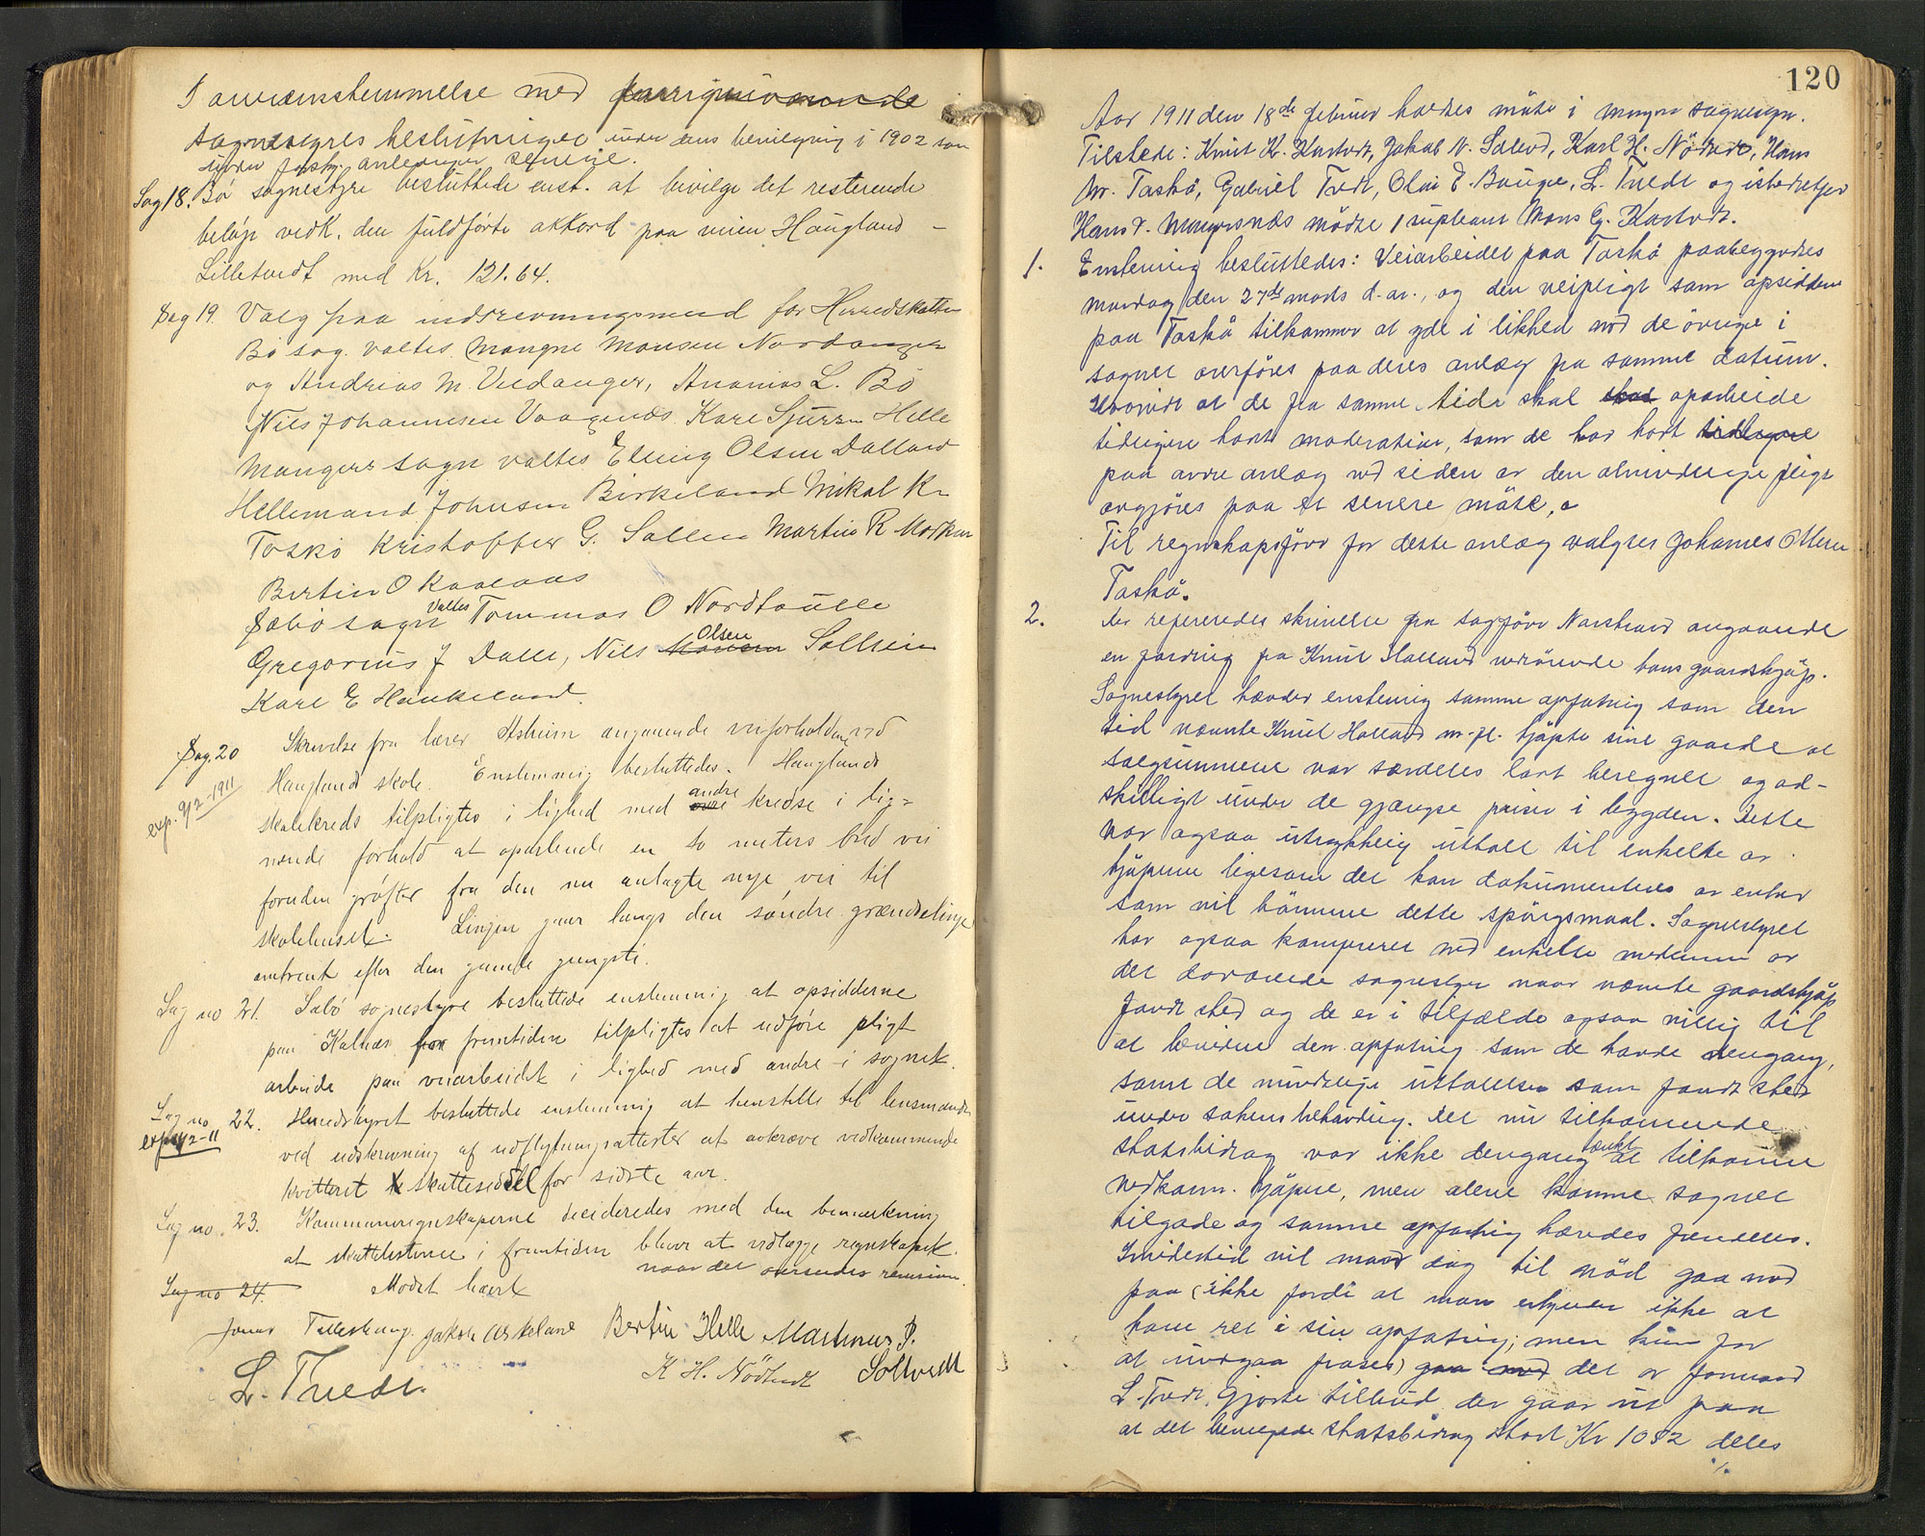 I overensstemmelse med
sognestyres beslutninger under dens bevilgning i 1902 som
senere.
Sag 18. Bø sognestyre besluttede enst. at bevilge det resterende
beløp vedk. den fuldførte akkord paa veien Haugland –
Lilletvedt med Kr. 121.64.
Sag 19. Valg paa inddrivningsmend for Herredskatten
Bø sog. valtes Mangne Monsen Nordanger
og Andrias M. Veidanger, Ananias L. Bø
Nils Johannesen Vaagenes Karl Sjursen Helle
Mangers sogn valtes Elling Olsen Dalland
Hellemand Johnsen Birkeland Mikal Kr.
Toskø Kristoffer G. Sallen Martin R.
Bertin O
Sæbø sogn valtes Tommas O Nordtoulle
Gregorius J Dalle, Nils Olsen Soltvein
Karl E Haukeland.
Sag. 20 Skrivelse fra lærer Askeim angaaende veiforholdene ved
Haugland skole. Enstemmig besluttedes. Hauglands
exp. 9/2-1911
skolekreds tilpligtes i lighed med andre kredse i lig-
nende forhold at oparbeide en to meters bred vei
foruden grøfter fra den nu anlagte nye vei til
skolehuset. Linjen gaar langs den søndre grændselinje
omtrent efter den gamle gangsti.
Sag no 21. Sæbø sognestyre besluttede enstemmig at opsidderne
paa Kalnæs for fremtiden tilpligtes at udføre pligt
arbeide paa veiarbeidet i lighed med andre i sognet.
Sag no 22. Herredstyret besluttede enstemmig at henstille til lensmanden
ved udskrivning af udflytningsattester at avkræve vedkommende
kvitteret skatteseddel for sidste aar.
Sag no. 23. Kommuneregnskaperne decideredes med den bemerkning
at skattelisterne i fremtiden blever at vedlægge regnskapet.
naar det oversendes revisionen.
Sag no 24. Mødet hævet
Jonas Jakob Askeland Bertin Helle Martinus P.
L. Tvedt. K H. Nødtvedt Soltvedt
120
Aar 1911 den 18de februar holdtes møte i Manger sognestyr.
Tilstede: Knut K. Kartvedt, Jakob N. Sælevd, Karl H. Nødtvedt, Hans
M. Toskø, Gabriel Tvedt, Olai E. Bauge, L. Tvedt og istedetfor
Hans T. Mangersnæs mødte 1 supleant Mons G. Kartvedt.
1. Enstemmig besluttedes: Veiarbeidet paa Toskø paabegyndes
mandag den 27de marts d. a., og den veipligt som opsiddere
paa Toskø tilkommer at yde i likhed med de øvrige i
sognet overføres paa deres anlæg fra samme datum.
Hvorvidt at de fra samme tid skal oparbeide
tidligere havt moderation, som de har havt tidligere
paa andre anlæg ved siden av den almindelige pligt
avgjøres paa et senere møte.
Til regnskapsfører for dette anlæg valgtes Johannes Olsen
Toskø.
2. Der refereredes skrivelse fra sagfører Narstrand angaaende
en fordring fra Knut Halland vedrørende hans gaardskjøp.
Sognestyret hævder enstemmig samme opfatnig som den
tid nævnte Knut Halland m. fl. kjøpte sine gaarde at
salgsummene var særdeles lavt beregnet og ad-
skilligt under de gjængse priser i bygden. Dette
var ogsaa uttrykkelig uttalt til enkelte av
kjøperne ligesom det kan dokumenteres av enhver
som vil bedømme dette spørgsmaal. Sognestyret
har ogsaa konfereret med enkelte medlemmer av
det daværende sognestyr naar nævnte gaardskjøp
fandt sted og de er i tilfælde ogsaa villig til
at bevidne den opfatnig som de havde dengang,
samt de mundtlige uttalelser som fandt sted
under sakens behandling. Det nu tilkommende
statsbidrag var ikke dengang tænkt at tilkomme
vedkomm. kjøpere, men alene komme sognet
tilgode og samme opfatnig hævdes fremdeles.
Imidlertid vil man dog til nød gaa med
paa (ikke fordi at man erkjender ikke at
have ret i sin opfatnig; men kun for
at undgaa proses) det av formand
L. Tvedt gjorte tilbud der gaar ut paa
at det bevilgede statsbidrag stort Kr 1052 deles